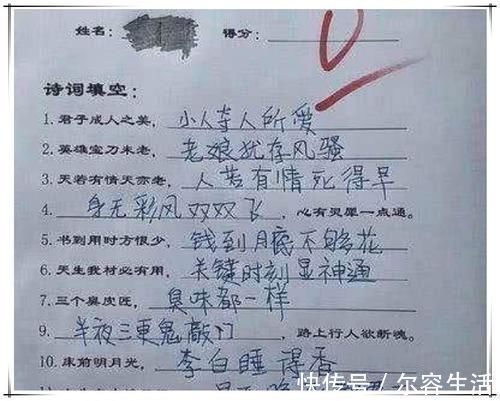 姓名： 得分：
0
诗词填空：
1. 君子成人之美，小人夺人所爱
2. 英雄宝刀未老，老娘犹存风骚
3. 天若有情天亦老，人若有情死得早
4. 身无彩风双双飞，心有灵犀一点通。
5. 书到用时方恨少，钱到月底不够花
6. 天生我材必有用，关键时刻显神通
7. 三个臭皮匠，臭味都一样
9. 半夜三更鬼敲门，路上行人欲断魂。
10. 床前明月光，李白睡得香
快传号 / 尔容生活